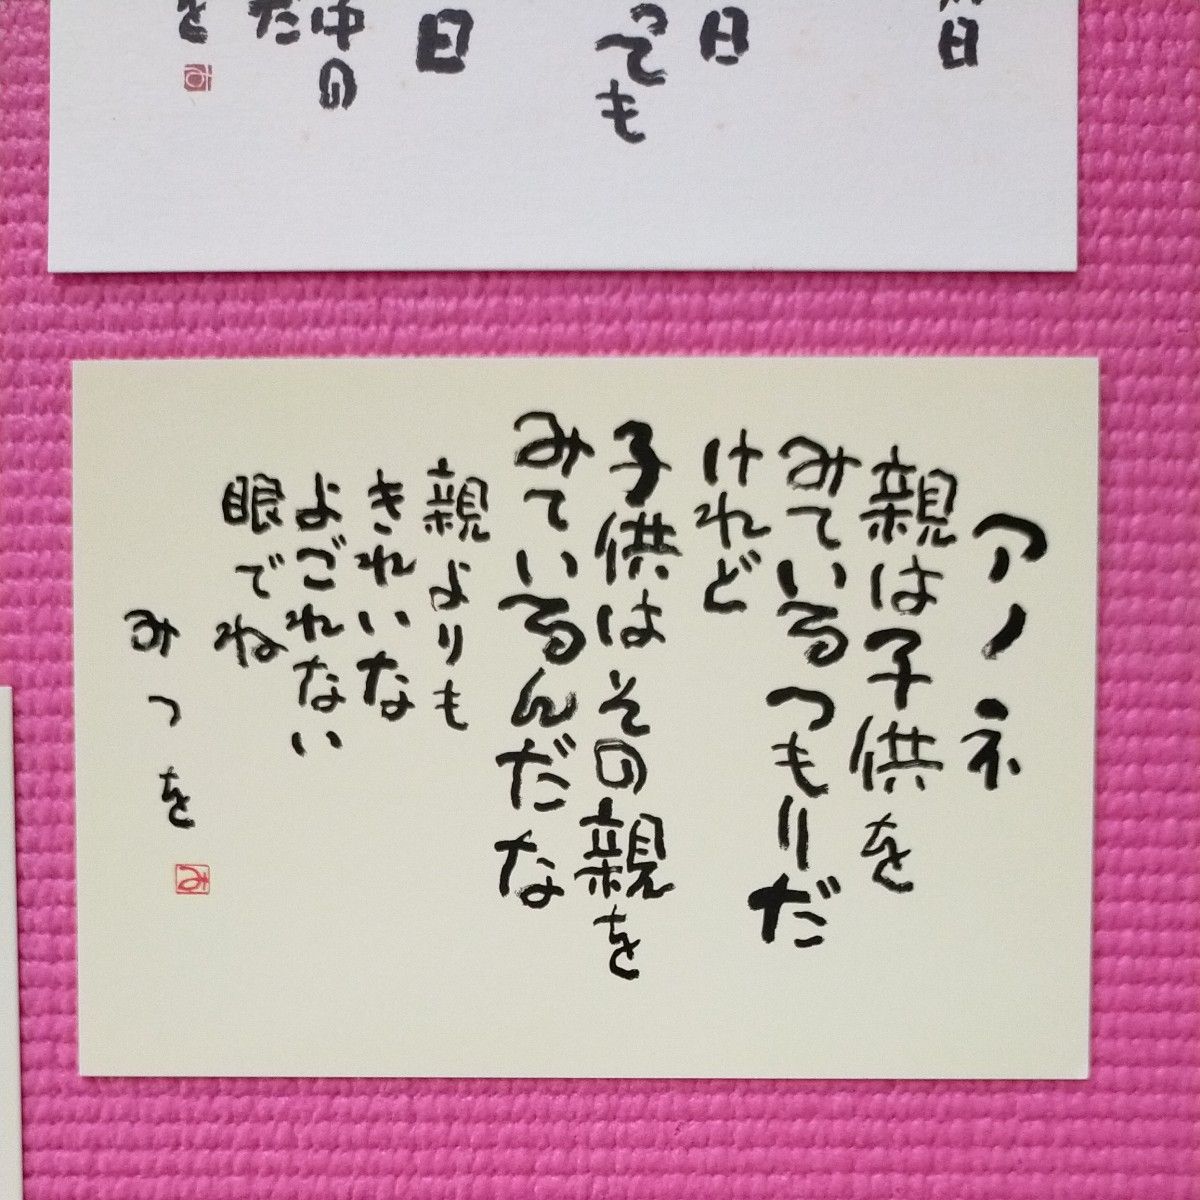 日
日
っても
日
中の
だ
を
み
アノネ
親は子供を
みているつもりだ
けれど
子供はその親を
みているんだな
親よりも
きれいな
よごれない
眼でね
みつを
み